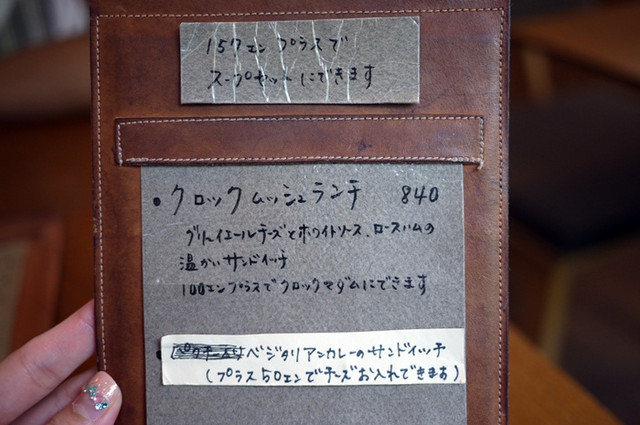 157エンプラスで
スープセットにできます
• クロックムッシュランチ 840
グリュイエールチーズとホワイトソース、ロースハムの
温かいサンドイッチ
100エンプラスでクロックマダムにできます
ベジタリアンカレーのサンドイッチ
(プラス50エンでチーズお入れできます)